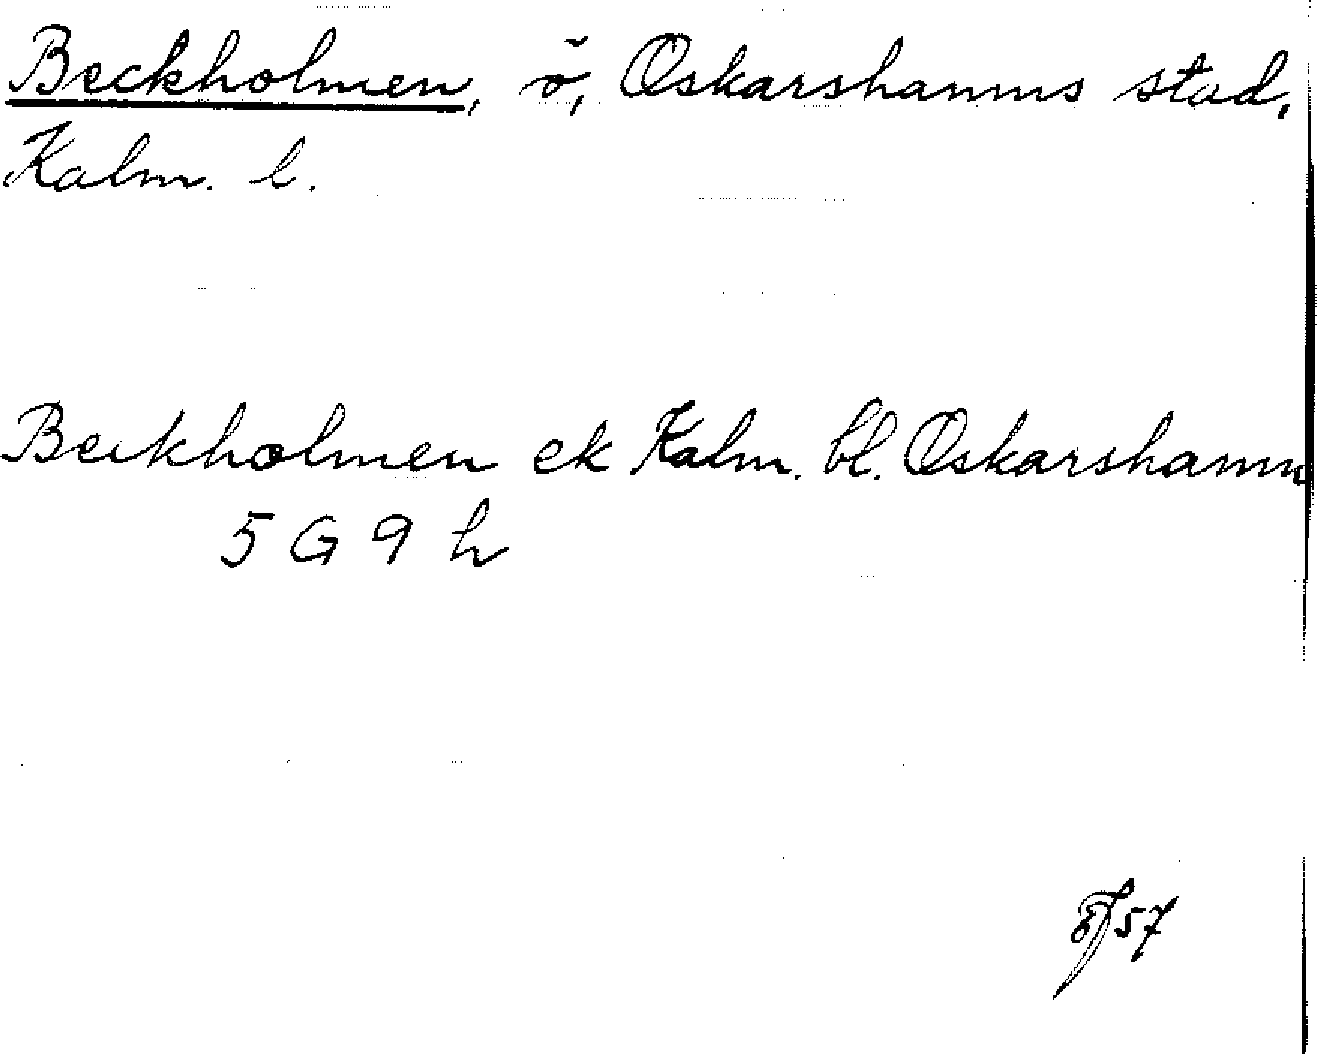 Beckholmen, ö, Oskarshamns stad,
Kalm. l.
Beckholmen ek Kalm. bl. Oskarshamn
5 G 9 h
57